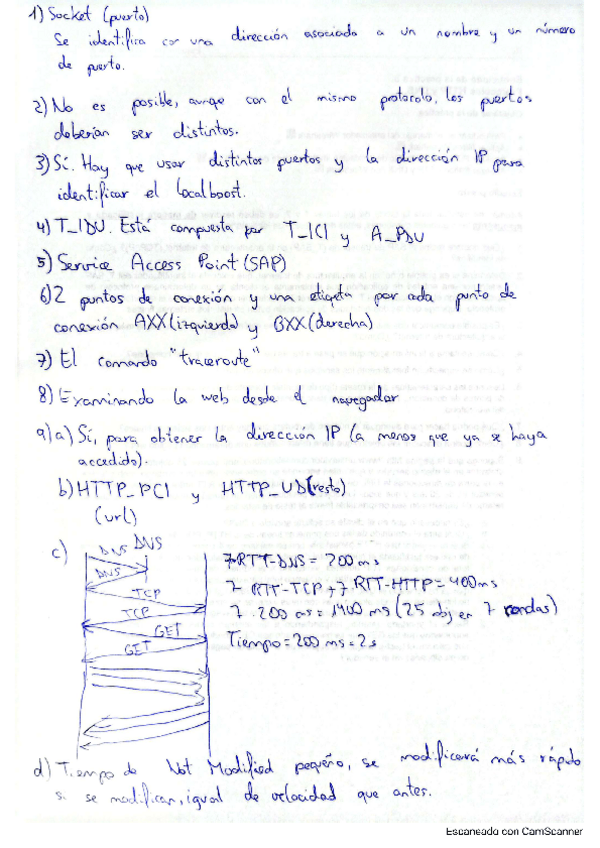 1) Socket (puerto)
Se identifica con una dirección asociada a un nombre y un número
de puerto.
2) No es posible, aunqe con el mismo protocolo, los puertos
deberían ser distintos.
3) Sí. Hay que usar distintos puertos y la dirección IP para
identificar el localboost.
4) T_IDU. Está compuesta por T_ICI y A_PDU
5) Service Access Point (SAP)
6) 2 puntos de conexión y una etiqueta por cada punto de
conexión AXX (izquierda) y BXX (derecha)
7) El comando "traceroute"
8) Examinando la web desde el navegador
9) a) Sí, para obtener la dirección IP (a menos que ya se haya
accedido).
b) HTTP_PCI y HTTP_UD (resto)
(url)
c) DNS DNS
DNS
TCP
TCP
GET
GET
7·RTT-DNS = 200 ms
7 RTT-TCP + 7 RTT-HTTP = 400 ms
7·200 ms = 1400 ms (25 obj en 7 rondas)
Tiempo = 200 ms = 2s
d) Tiempo de Not Modified pequeño, se modificará más rápido
si se modifican, igual de velocidad que antes.
Escaneado con CamScanner